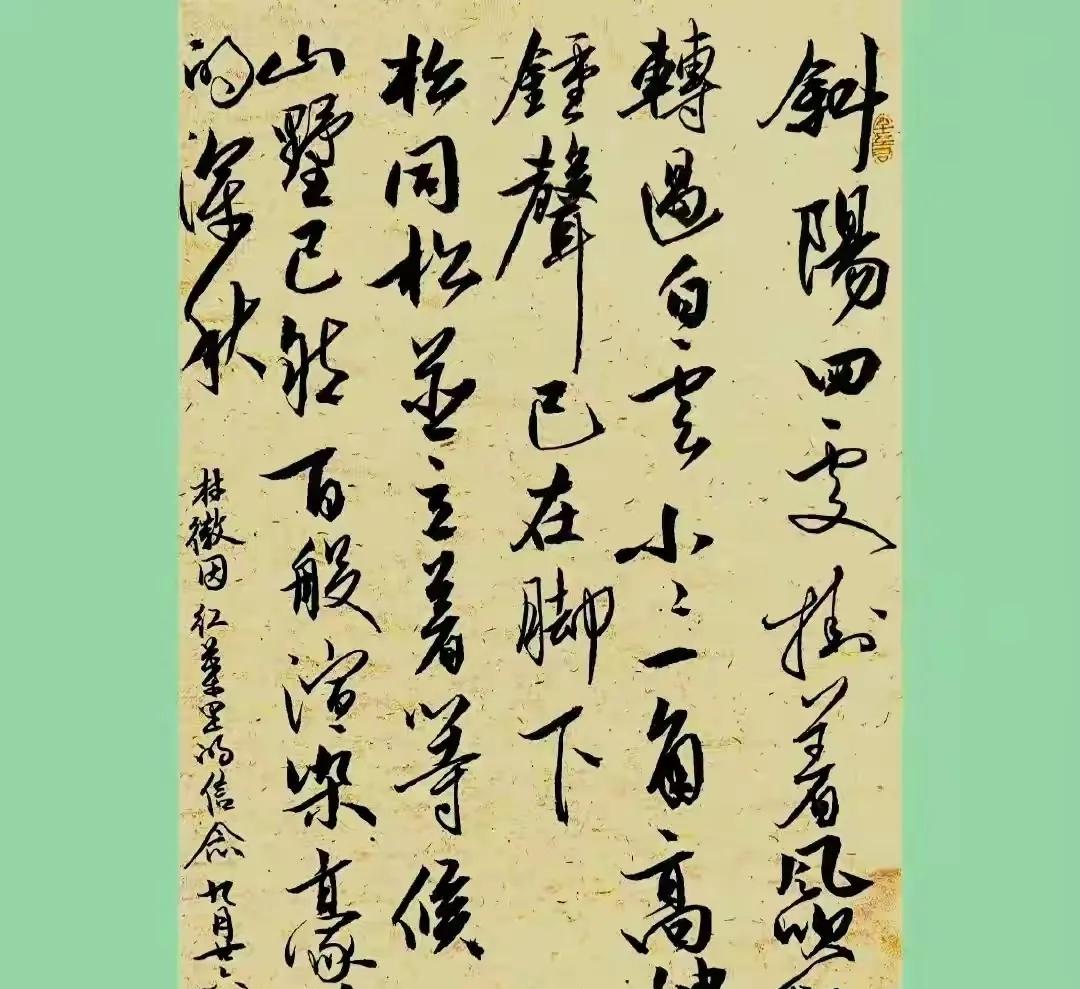 斜陽四處掛着風吹
轉過白雲小小一角高
鍾聲已在脚下
松同松並立着等候
山墅已然百般渲染豪
的深秋
林徽因紅葉里的信念九月廿